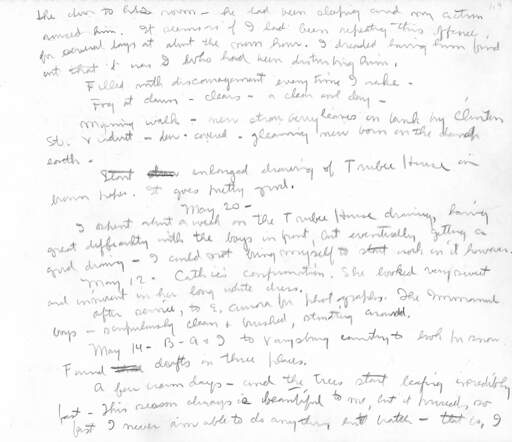 the door to his room - he had been sleeping and my action
aroused him. It seems as if I had been repeating this offence
for several days at about the same hour. I dreaded having him find
out that it was I who had been disturbing him.
Filled with discouragement every time I wake.
Fog at dawn - clears - a clear and day -
Morning walk - new strawberry leaves on bank by Clinton
St. - dew - covered - gleaming new born on the
earth -
Start enlarged drawing of Trubee House on
brown paper. It goes pretty good.
May 20 -
I spent about a week on the Trubee House drawing, having
great difficulty with the boys in front, but eventually getting a
good drawing - I could not bring myself to start work on it however.
May 12 - Cathie's confirmation. She looked very sweet
and innocent in her long white dress.
after service, to E. Aurora for photographs. The Immanuel
boys - scrupulously clean & brushed, standing around.
May 14 - B - A & I to Varysburg country to look for snow
Found drifts in three places.
A few warm days - and the trees start leafing incredibly
fast - This season always is beautiful to me, but it hurries, so
fast I never am able to do anything but watch - that is, I